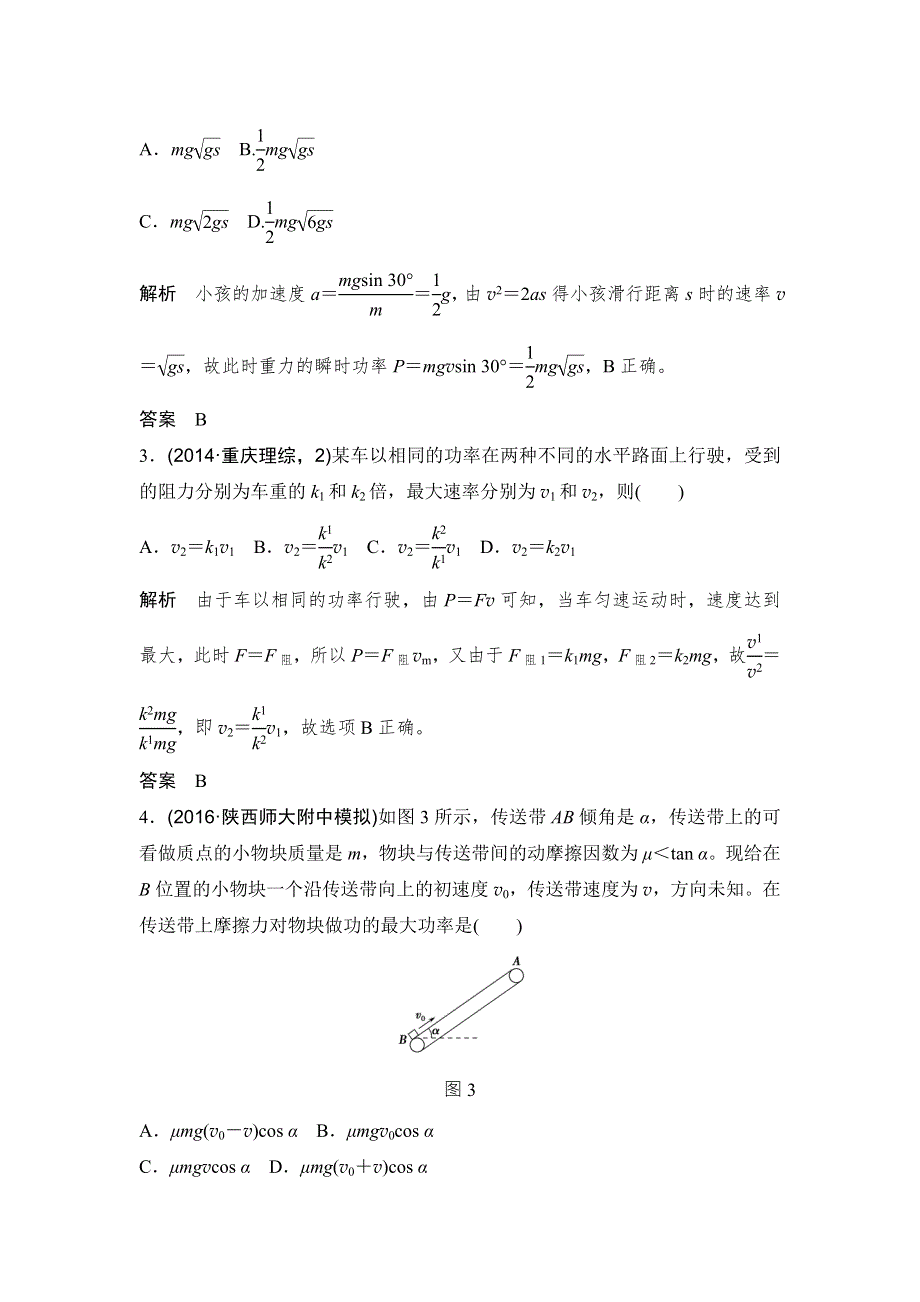 A．mg√gs　B.1/2mg√gs
C．mg√2gs　D.1/2mg√6gs
解析　小孩的加速度 a＝mgsin 30°/m＝1/2g，由 v2＝2as 得小孩滑行距离 s 时的速率 v
＝√gs，故此时重力的瞬时功率 P＝mgvsin 30°＝1/2mg√gs，B 正确。
答案　B
3．(2014·重庆理综，2)某车以相同的功率在两种不同的水平路面上行驶，受到
的阻力分别为车重的 k1 和 k2 倍，最大速率分别为 v1 和 v2，则(　　)
A．v2＝k1v1　B．v2＝k1/k2v1　C．v2＝k2/k1v1　D．v2＝k2v1
解析　由于车以相同的功率行驶，由 P＝Fv 可知，当车匀速运动时，速度达到
最大，此时 F＝F阻，所以 P＝F阻vm，又由于 F阻1＝k1mg，F阻2＝k2mg，故v1/v2＝
k2mg/k1mg，即 v2＝k1/k2v1，故选项 B 正确。
答案　B
4．(2016·陕西师大附中模拟)如图 3 所示，传送带 AB 倾角是 α，传送带上的可
看做质点的小物块质量是 m，物块与传送带间的动摩擦因数为 μ＜tan α。现给在
B 位置的小物块一个沿传送带向上的初速度 v0，传送带速度为 v，方向未知。在
传送带上摩擦力对物块做功的最大功率是(　　)
A
v0
B α
图 3
A．μmg(v0－v)cos α　B．μmgv0cos α
C．μmgvcos α　D．μmg(v0＋v)cos α